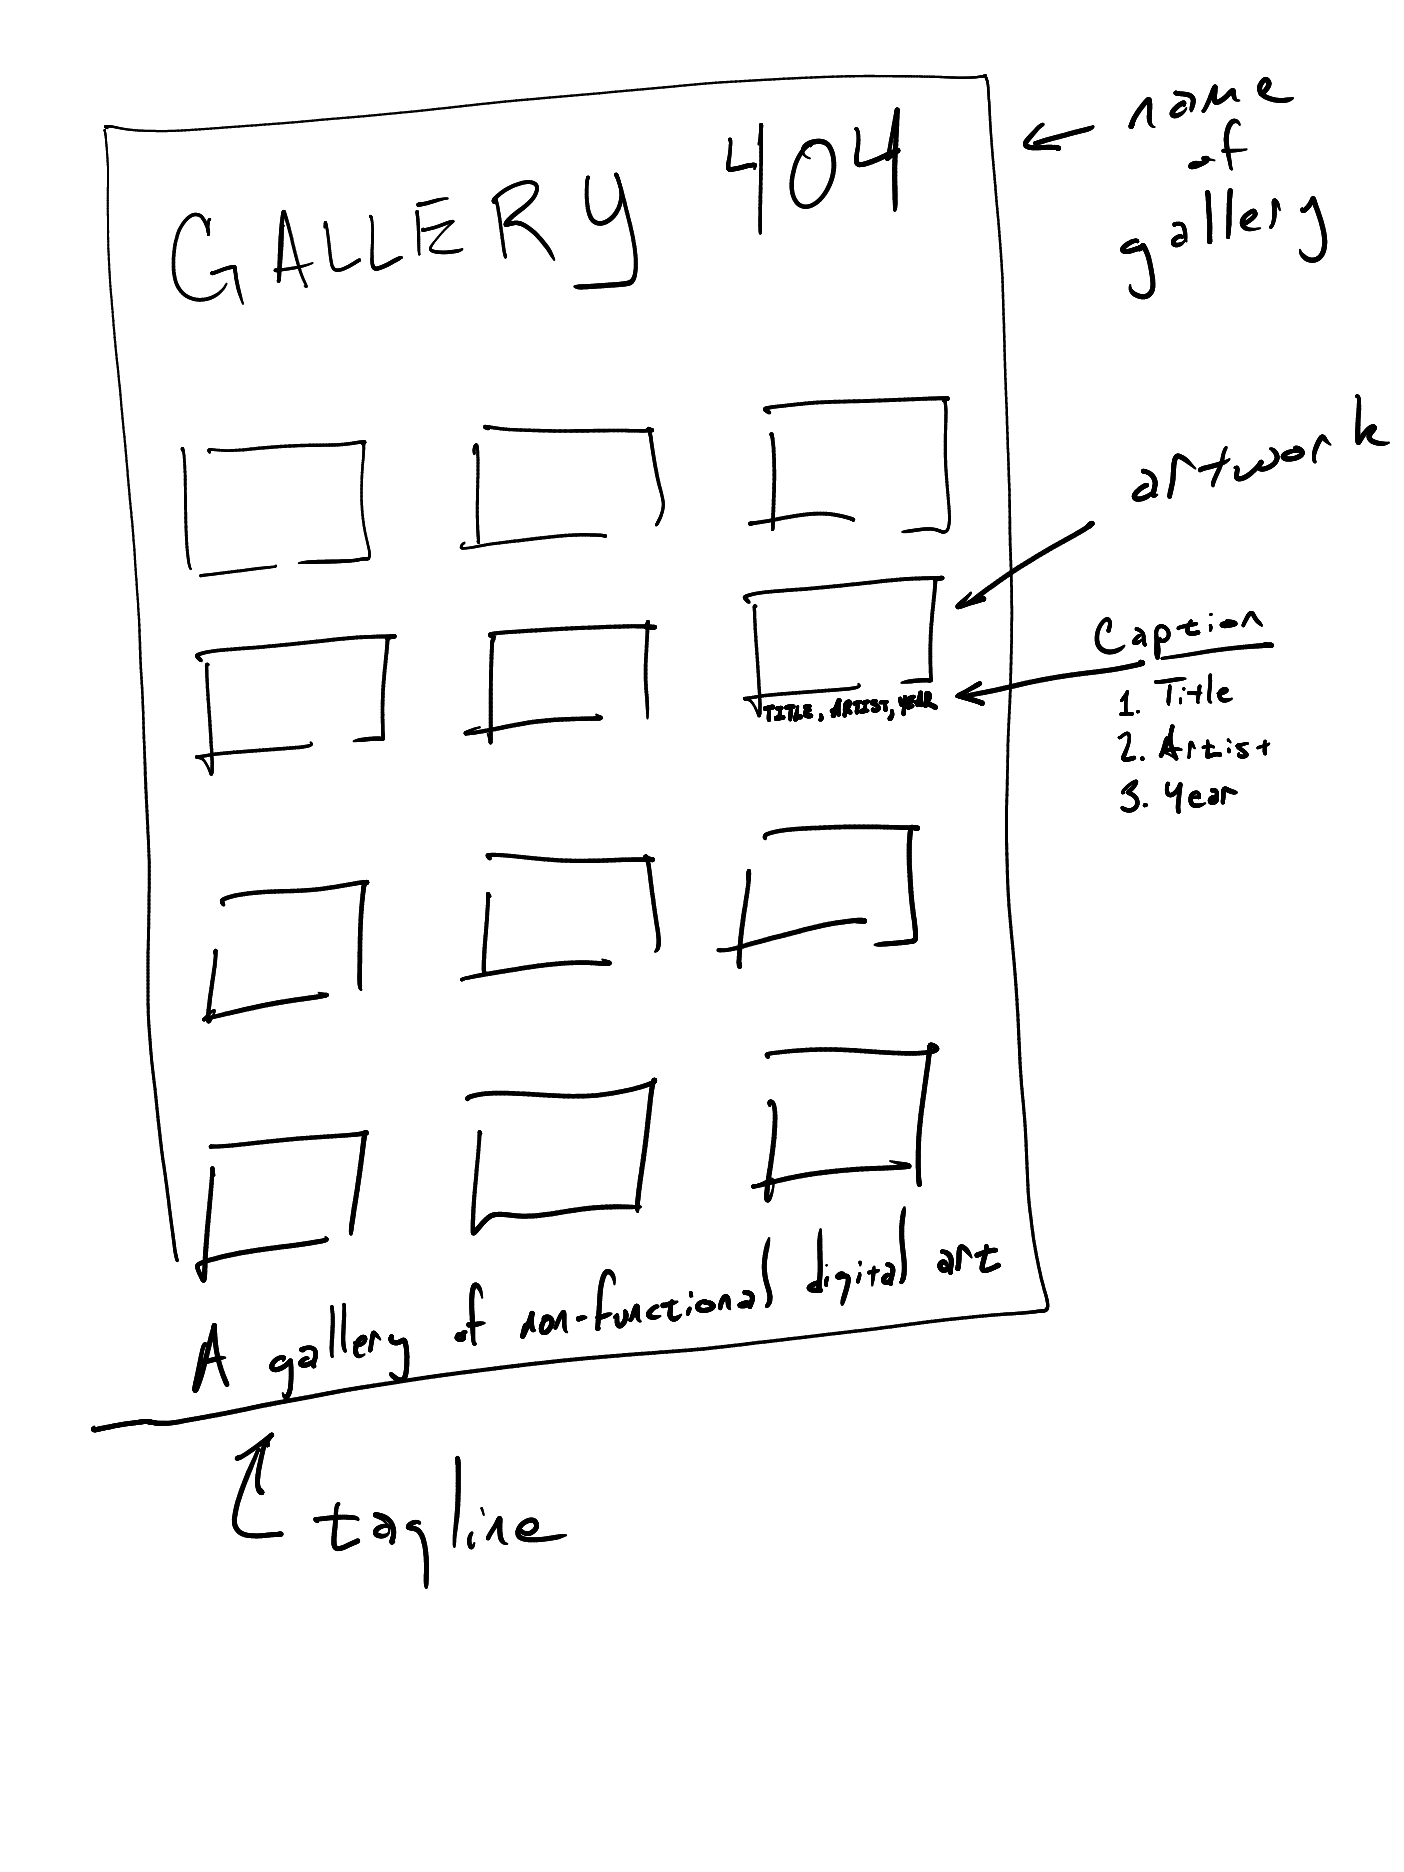 GALLERY 404
name
of
gallery
artwork
Caption
1. Title
2. Artist
3. Year
TITLE, ARTIST, YEAR
A gallery of non-functional digital art
tagline